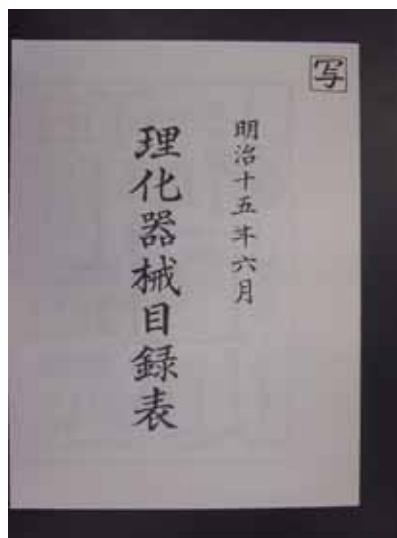 写
明治十五年六月
理化器械目録表